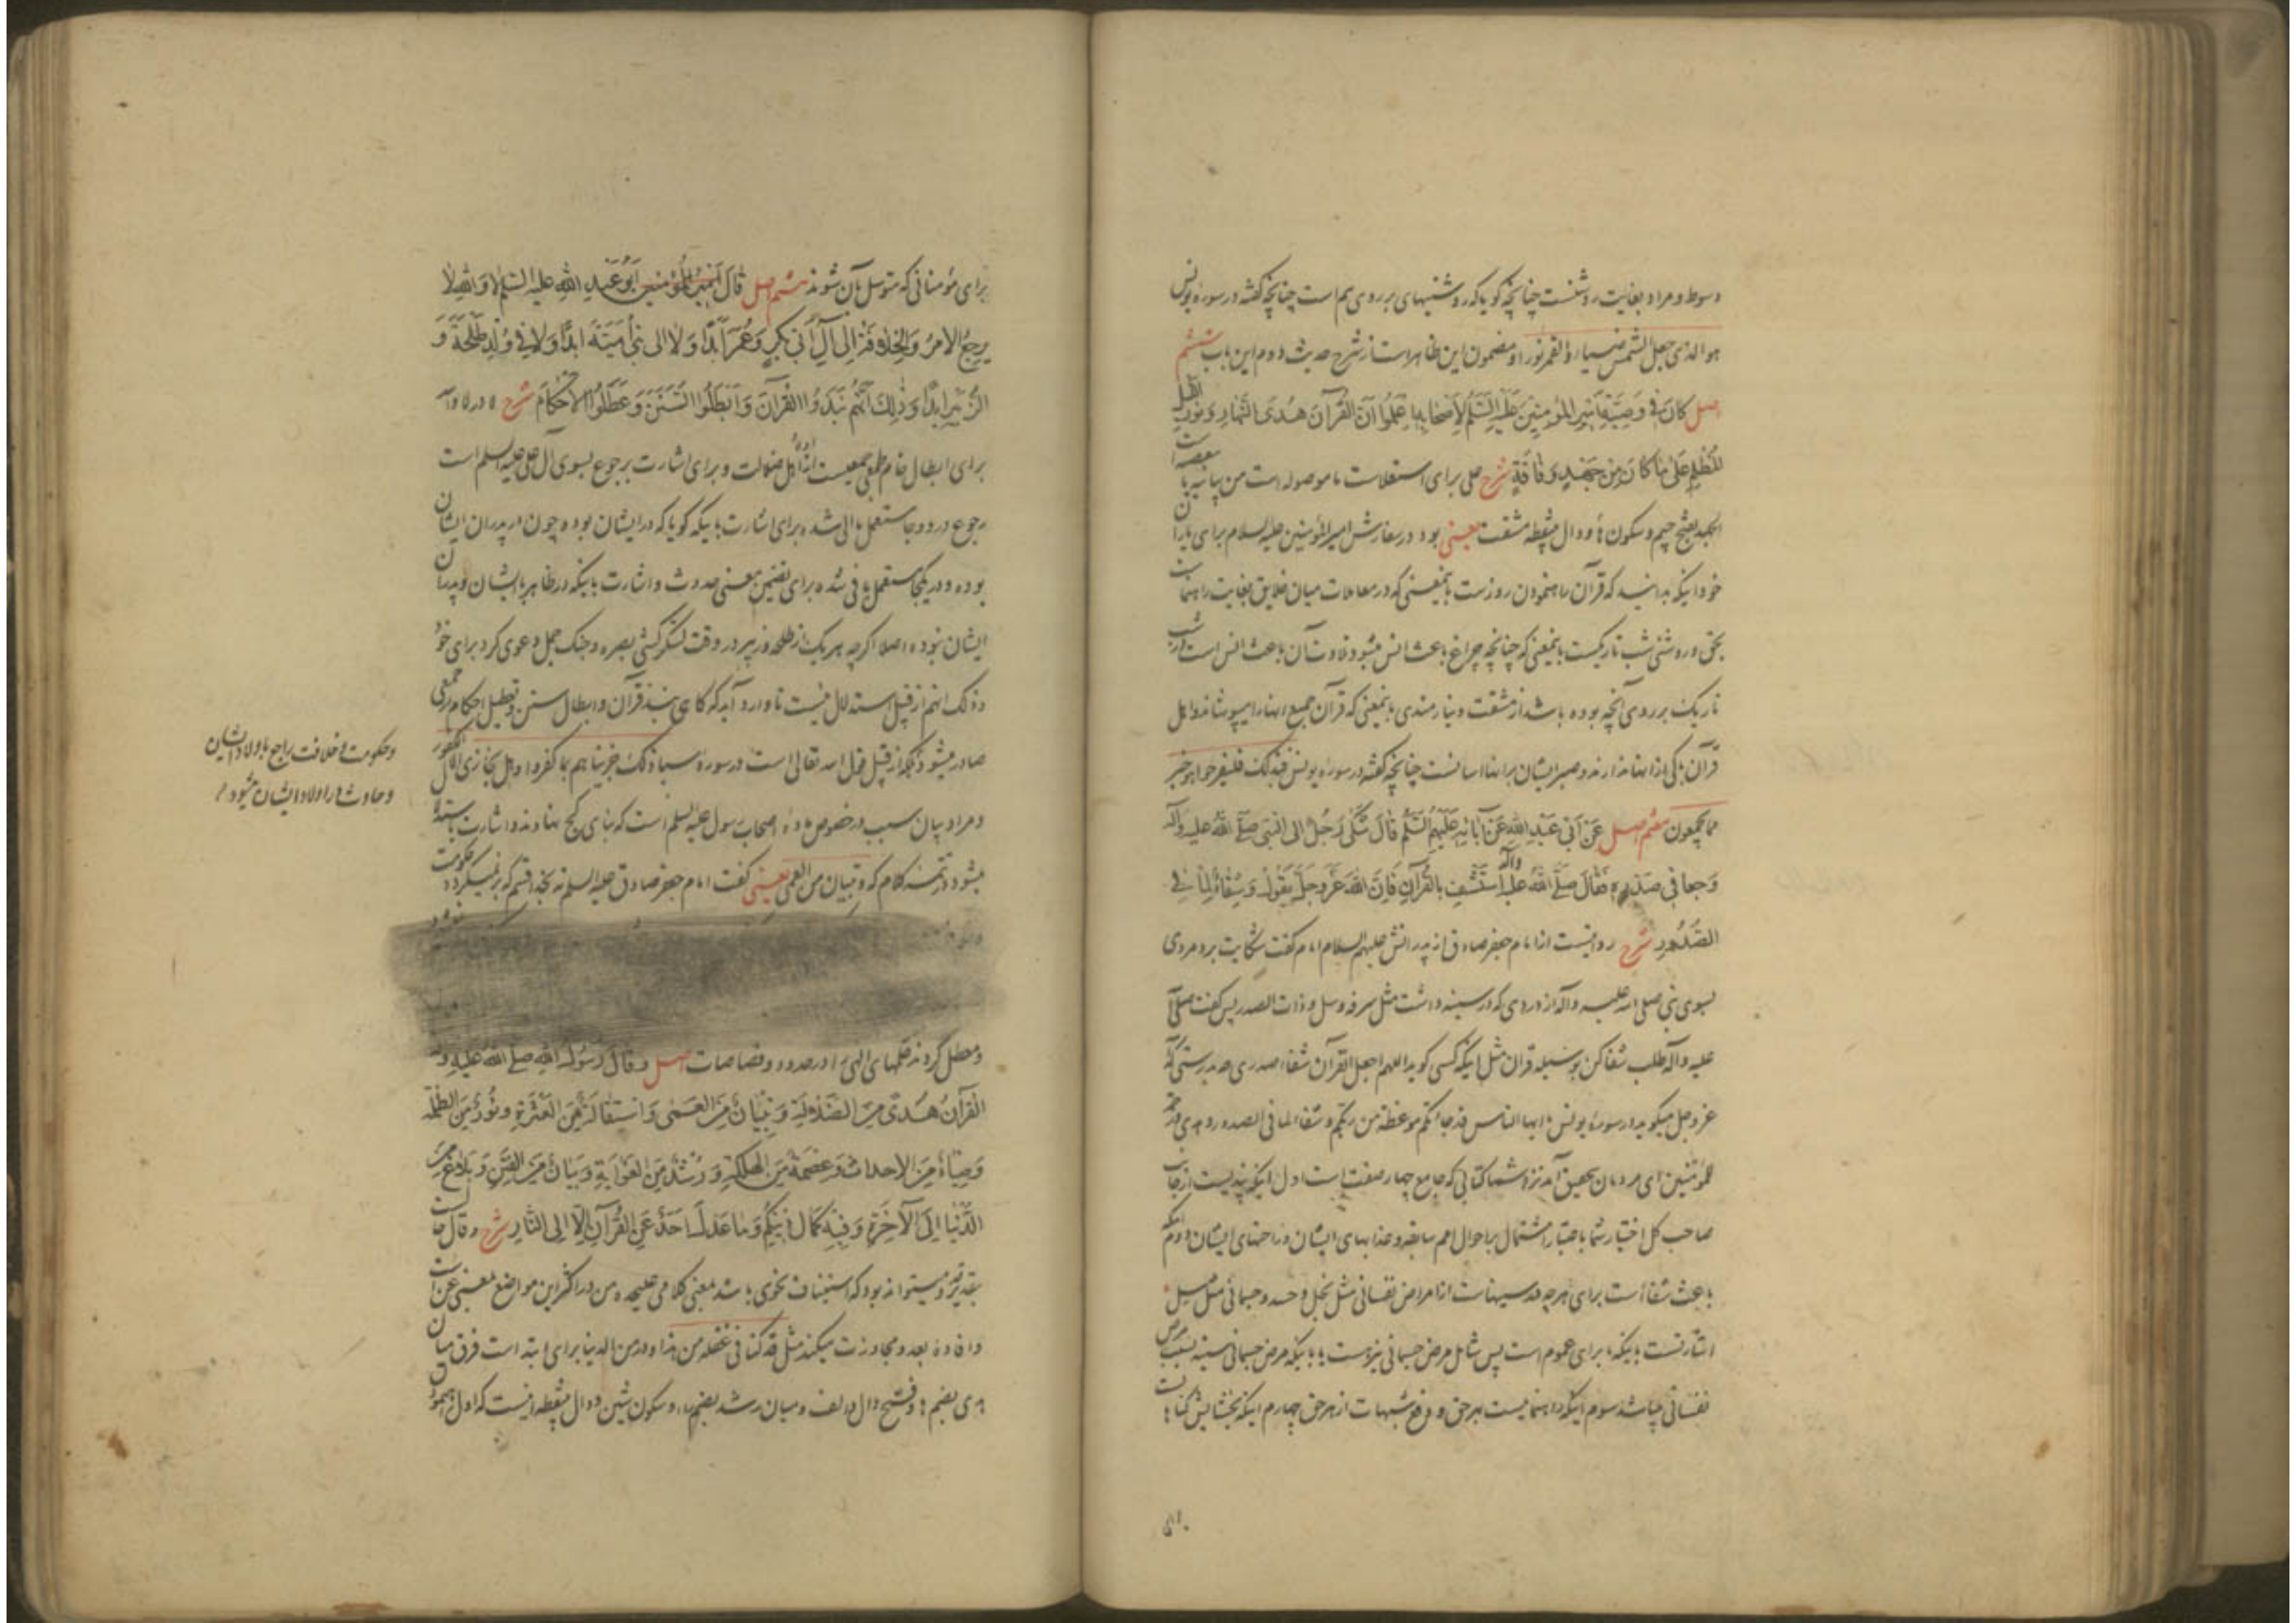 وسط و مراد بغایت روشنست چنانچه کویا که روشنیهای بر روی هم است چنانچه کفته در سوره یونس
هو الذی جعل الشمس ضیاء و القمر نورا و مضمون این ظاهر است از شرح حدیث دوم این باب ششم
اصل كَانَ فِي وَصِيَّةِ أَمِيرِ الْمُؤْمِنِينَ عَلَيْهِ السَّلَمُ لِأَصْحَابِهِ اعْلَمُوا أَنَّ الْقُرْآنَ هُدَى النَّهَارِ وَنُورُ اللَّيْلِ
الْمُظْلِمِ عَلَى مَا كَانَ مِنْ جَهْدٍ وَفَاقَةٍ شرح علی برای استعلاست ما موصوله است من بیانیه
الجهد بفتح جیم و سکون ها و دال بینقطه مشقت یعنی بود در سفارش امیر المؤمنین علیه السلام برای یاران
خود اینکه بدانید که قرآن راه نمودن روزست بمعنی که در معاملات میان خلایق بغایت راهنماست
بحق و روشنی شب تاریکست بمعنی که چنانچه چراغ باعث انس میشود تلاوت آن باعث انس است در شب
تاریک بر روی آنچه بوده باشد از مشقت و نیازمندی بمعنی که قرآن جمیع اینها را میپوشاند و اهل
قرآن باکی از اینها ندارند و صبر ایشان بر اینها آسانست چنانچه کفته در سوره یونس فبذلک فلیفرحوا هو خیر
مما یجمعون هفتم اصل عَنْ أَبِي عَبْدِ اللَّهِ عَنْ آبَائِهِ عَلَيْهِمُ السَّلَمُ قَالَ شَكَى رَجُلٌ إِلَى النَّبِيِّ صَلَّى اللَّهُ عَلَيْهِ وَآلِهِ
وَجَعًا فِي صَدْرِهِ فَقَالَ صَلَّى اللَّهُ عَلَيْهِ وَآلِهِ اسْتَشْفِ بِالْقُرْآنِ فَإِنَّ اللَّهَ عَزَّ وَجَلَّ يَقُولُ وَشِفَاءٌ لِمَا فِي
الصُّدُورِ شرح روایتست از امام جعفر صادق از پدرانش علیهم السلام امام کفت شکایت برد مردی
بسوی نبی صلی الله علیه و آله از دردی که در سینه داشت مثل سرفه و سل و ذات الصدر پس کفت صلی الله
علیه و آله طلب شفا کن بوسیله قران مثل اینکه کسی کوید اللهم اجعل القرآن شفاء صدری چه بدرستی که الله
عز و جل میکوید در سوره یونس یا ایها الناس قد جاءتکم موعظة من ربکم و شفاء لما فی الصدور و هدی و رحمة
للمؤمنین ای مردمان بتحقیق آمد نزد شما کتابی که جامع چهار صفت است اول اینکه پندیست از جانب
صاحب کل اختیار شما باعتبار اشتمال بر احوال امم سابقه و عذابهای ایشان و راحتهای ایشان دوم اینکه
باعث شفا است برای هر چه در سینهاست از امراض نفسانی مثل بخل و حسد و جسمانی مثل سل
اشارتست باینکه ما برای عموم است پس شامل مرض جسمانی نیز هست یا باینکه مرض جسمانی سینه بسبب مرض
نفسانی میباشد سوم اینکه راهنماییست بهر حق و دفع شبهات از هر حق چهارم اینکه بخشایش کناه است
برای
برای مؤمنانی که متوسل بآن شوند هشتم اصل قَالَ أَمِيرُ الْمُؤْمِنِينَ أَبُو عَبْدِ اللَّهِ عَلَيْهِ السَّلَمُ لَا وَاللَّهِ لَا
يَرْجِعُ الْأَمْرُ وَالْخِلَافَةُ إِلَى آلِ أَبِي بَكْرٍ وَعُمَرَ أَبَدًا وَلَا إِلَى بَنِي أُمَيَّةَ أَبَدًا وَلَا فِي وُلْدِ طَلْحَةَ وَ
الزُّبَيْرِ أَبَدًا وَذَلِكَ أَنَّهُمْ نَبَذُوا الْقُرْآنَ وَأَبْطَلُوا السُّنَنَ وَعَطَّلُوا الْأَحْكَامَ شرح لا در لا والله
برای ابطال خام طمعی جمعیست از اهل ضلالت و برای اشارت برجوع بسوی آل علی علیه السلم است
رجوع در دو جا مستعمل بالی شده برای اشارت باینکه کویا که در ایشان بوده چون در پدران ایشان
بوده و در یکجا مستعمل بفی شده برای تضمین معنی حدوث و اشارت باینکه در ظاهر با ایشان و پدران
ایشان نبوده اصلا اکرچه هر یک از طلحه و زبیر در وقت لشکرکشی بصره و جنک جمل دعوی کرد برای خود
و ذلک انهم از قبیل استدلال نیست تا وارد آید که کاهی نبذ قرآن و ابطال سنن و تعطیل احکام از جمعی
صادر میشود بلکه از قبیل قول الله تعالی است در سوره سبا ذلک جزیناهم بما کفروا و هل نجازی الا الکفور
و مراد بیان سبب در خصوص ماده اصحاب رسول علیه السلم است که بنای کج نهادند و اشارت باینست
میشود در تتمه کلام که و تبیان من العمی یعنی کفت امام جعفر صادق علیه السلم نه بخدا قسم که برنمیکردد حکومت
و معطل کردند حکمهای الهی را در حدود و قصاصات اصل وَقَالَ رَسُولُ اللَّهِ صَلَّى اللَّهُ عَلَيْهِ وَآلِهِ
الْقُرْآنُ هُدًى مِنَ الضَّلَالَةِ وَتِبْيَانٌ مِنَ الْعَمَى وَاسْتِقَالَةٌ مِنَ الْعَثْرَةِ وَنُورٌ مِنَ الظُّلْمَةِ
وَضِيَاءٌ مِنَ الْأَحْدَاثِ وَعِصْمَةٌ مِنَ الْهَلَكَةِ وَرُشْدٌ مِنَ الْغَوَايَةِ وَبَيَانٌ مِنَ الْفِتَنِ وَبَلَاغٌ مِنَ
الدُّنْيَا إِلَى الْآخِرَةِ وَفِيهِ كَمَالُ دِينِكُمْ وَمَا عَدَلَ أَحَدٌ عَنِ الْقُرْآنِ إِلَّا إِلَى النَّارِ شرح و قال
بتقدیر قد و میتواند بود که استیناف نحوی باشد بمعنی کلامی علیحده من در اکثر این مواضع بمعنی عن است
و افاده بعد و مجاوزت میکند مثل قد کنا فی غفلة من هذا و در من الدنیا برای ابتداست فرق میان
هدی بضم ها و فتح دال و الف و میان رشد بضم را و سکون شین و دال بینقطه اینست که اول
و حکومت و خلافت راجع باولاد ایشان
و حادث در اولاد ایشان میشود